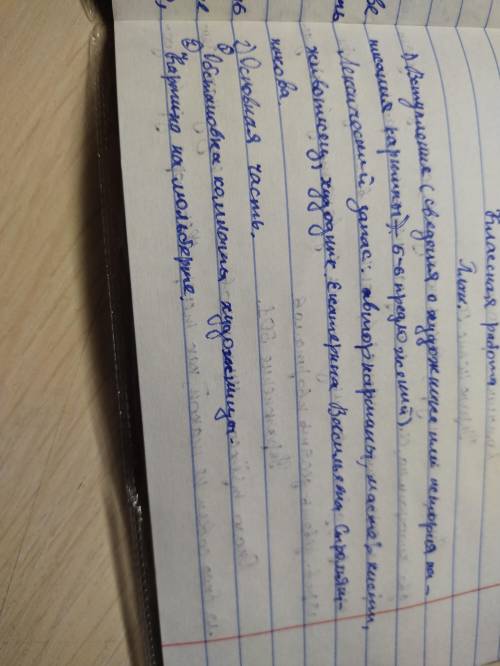 Классная работа.
План.
1) Вступление (сведения о художнике или история на-
писания картины) 5-6 предложений)
Лексический запас: автор картины, мастер кисти,
живописец, художник Екатерина Васильевна Сромят-
никова
2) Основная часть.
Обстановка комнаты художницы.
Картина на мольберте.